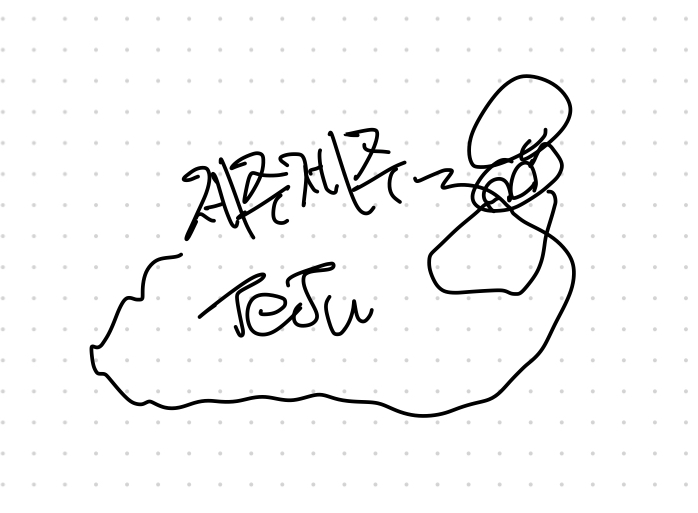 제주제주
JeJu